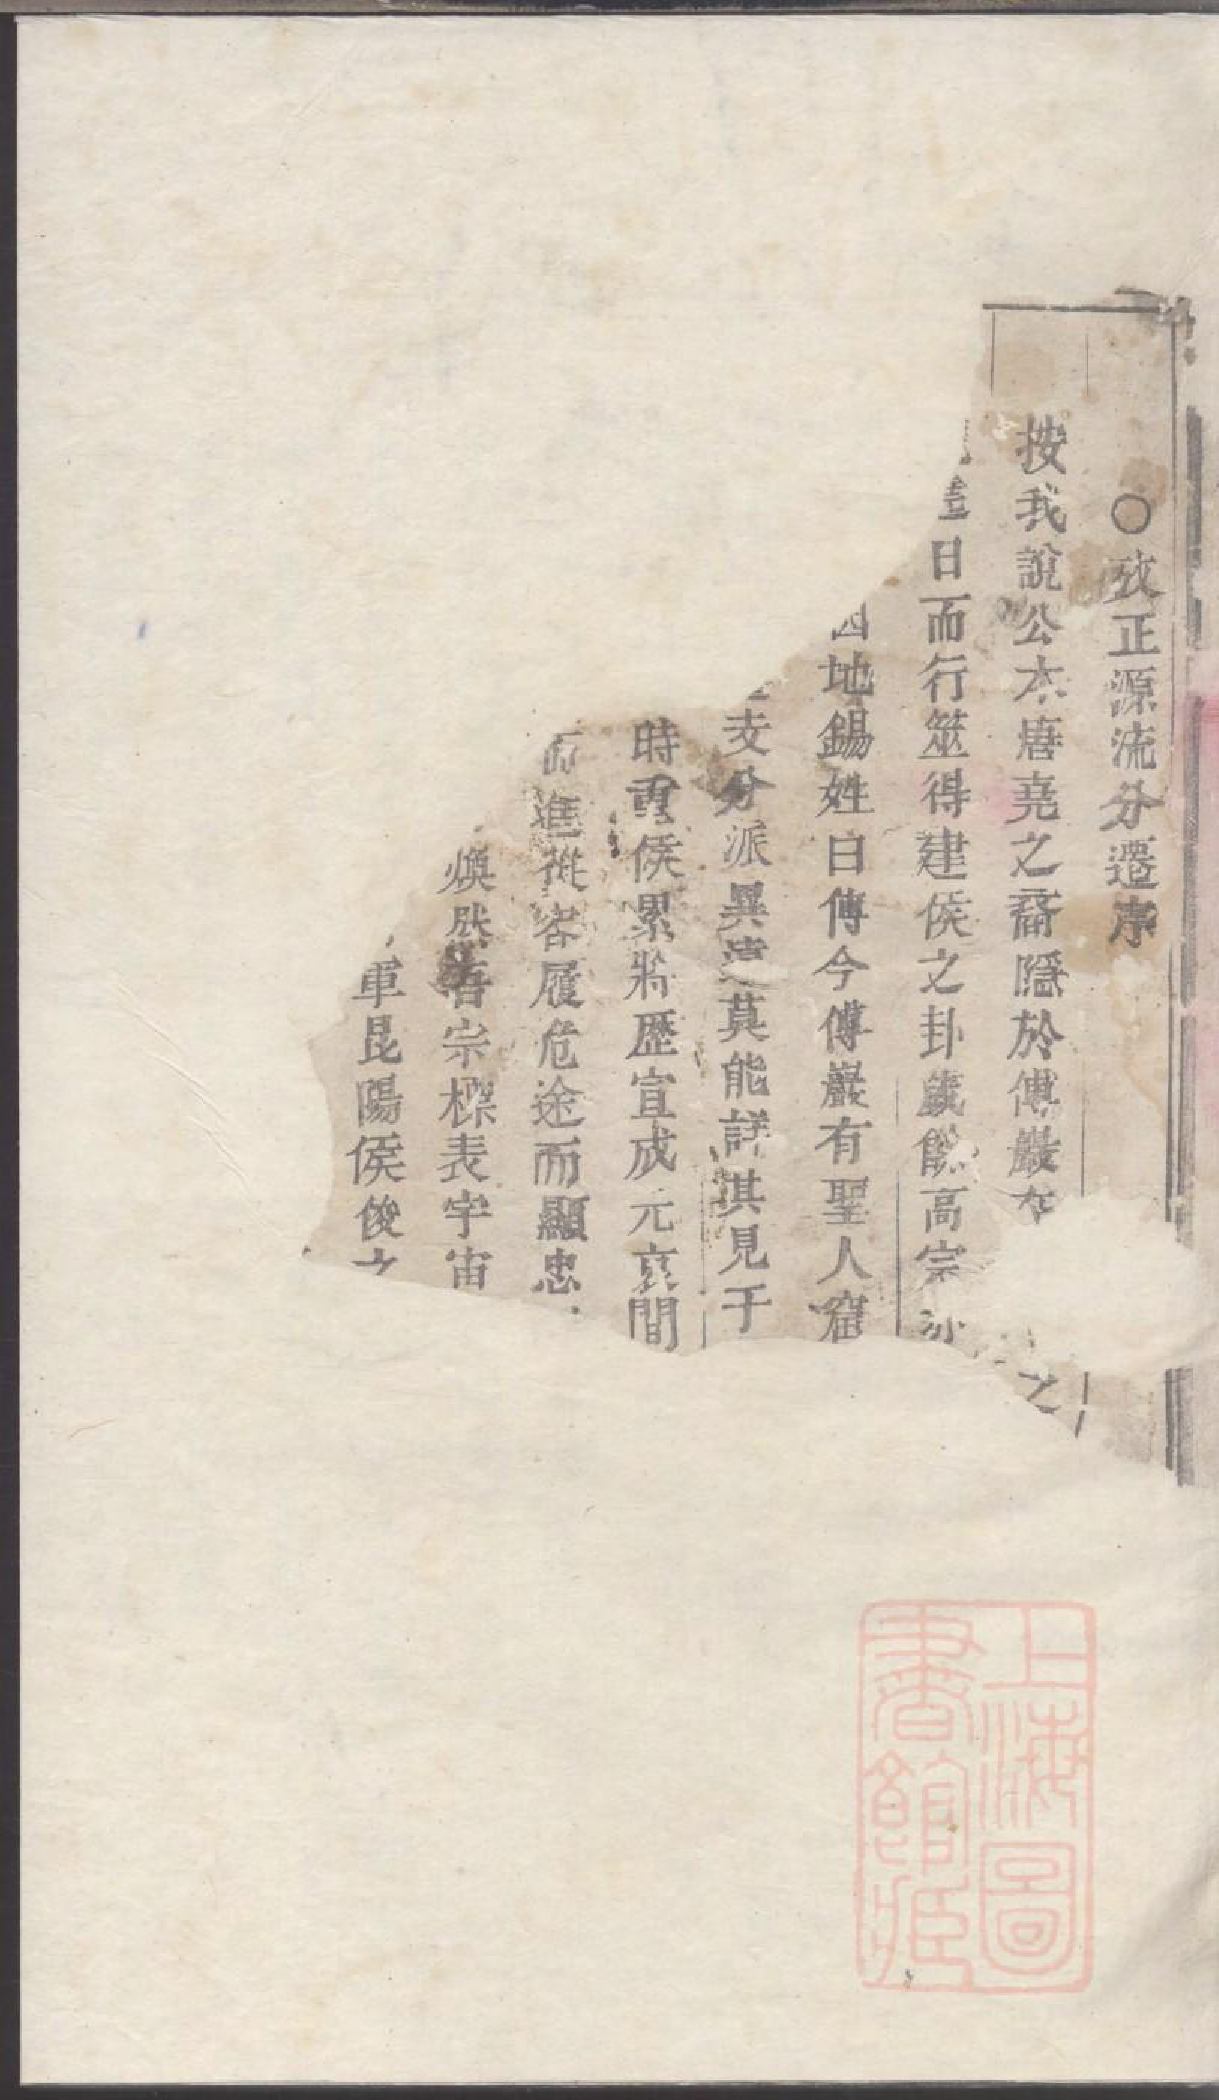 ○攷正源流分遷序
按我說公本唐堯之裔隱於傅巖 之
日而行筮得建侯之卦歲餘高宗
地錫姓曰傅今傅巖有聖人窟
支分派異遠莫能詳其見于
時重侯累將歷宣成元哀間
進從容履危途而顯忠
煥然吾宗標表宇宙
軍昆陽侯俊之
上海圖
書館藏